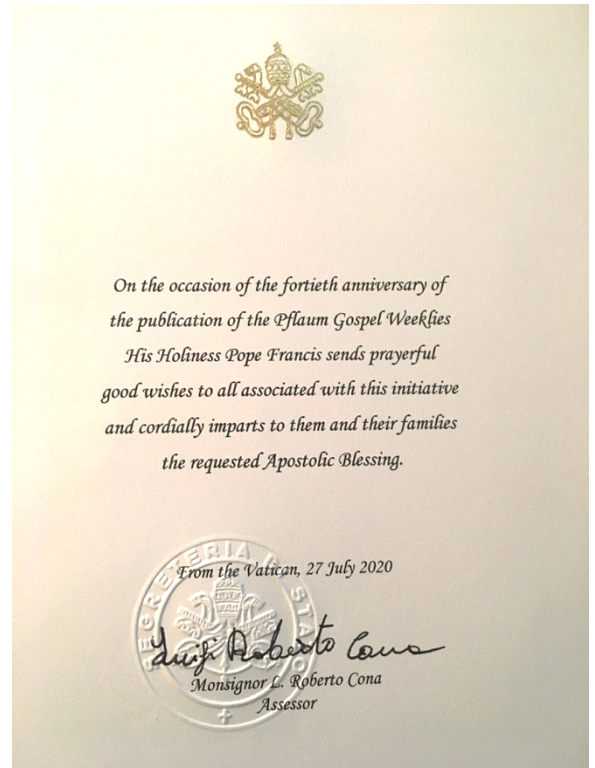 On the occasion of the fortieth anniversary of
the publication of the Pflaum Gospel Weeklies
His Holiness Pope Francis sends prayerful
good wishes to all associated with this initiative
and cordially imparts to them and their families
the requested Apostolic Blessing.
From the Vatican, 27 July 2020
SEGRETERIA DI STATO
Luigi Roberto Cona
Monsignor L. Roberto Cona
Assessor